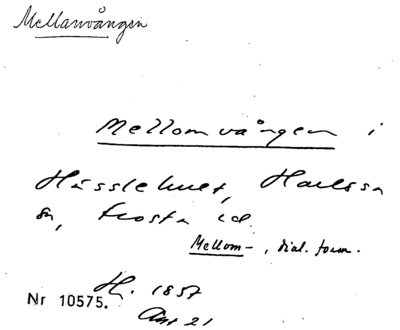 Mellanvången
Mellomvången i
Hässlehult, Harlösa
sn, Frosta hd.
Mellom-, dial. form.
H. 1857
Nr 10575.
Akt 21